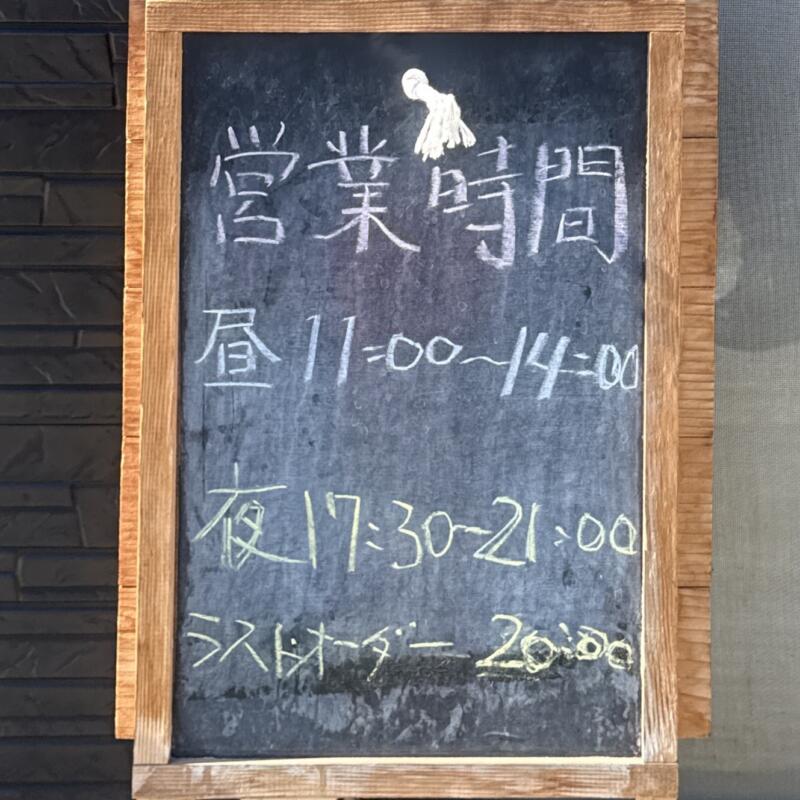 営業時間
昼 11:00〜14:00
夜 17:30〜21:00
ラストオーダー 20:00